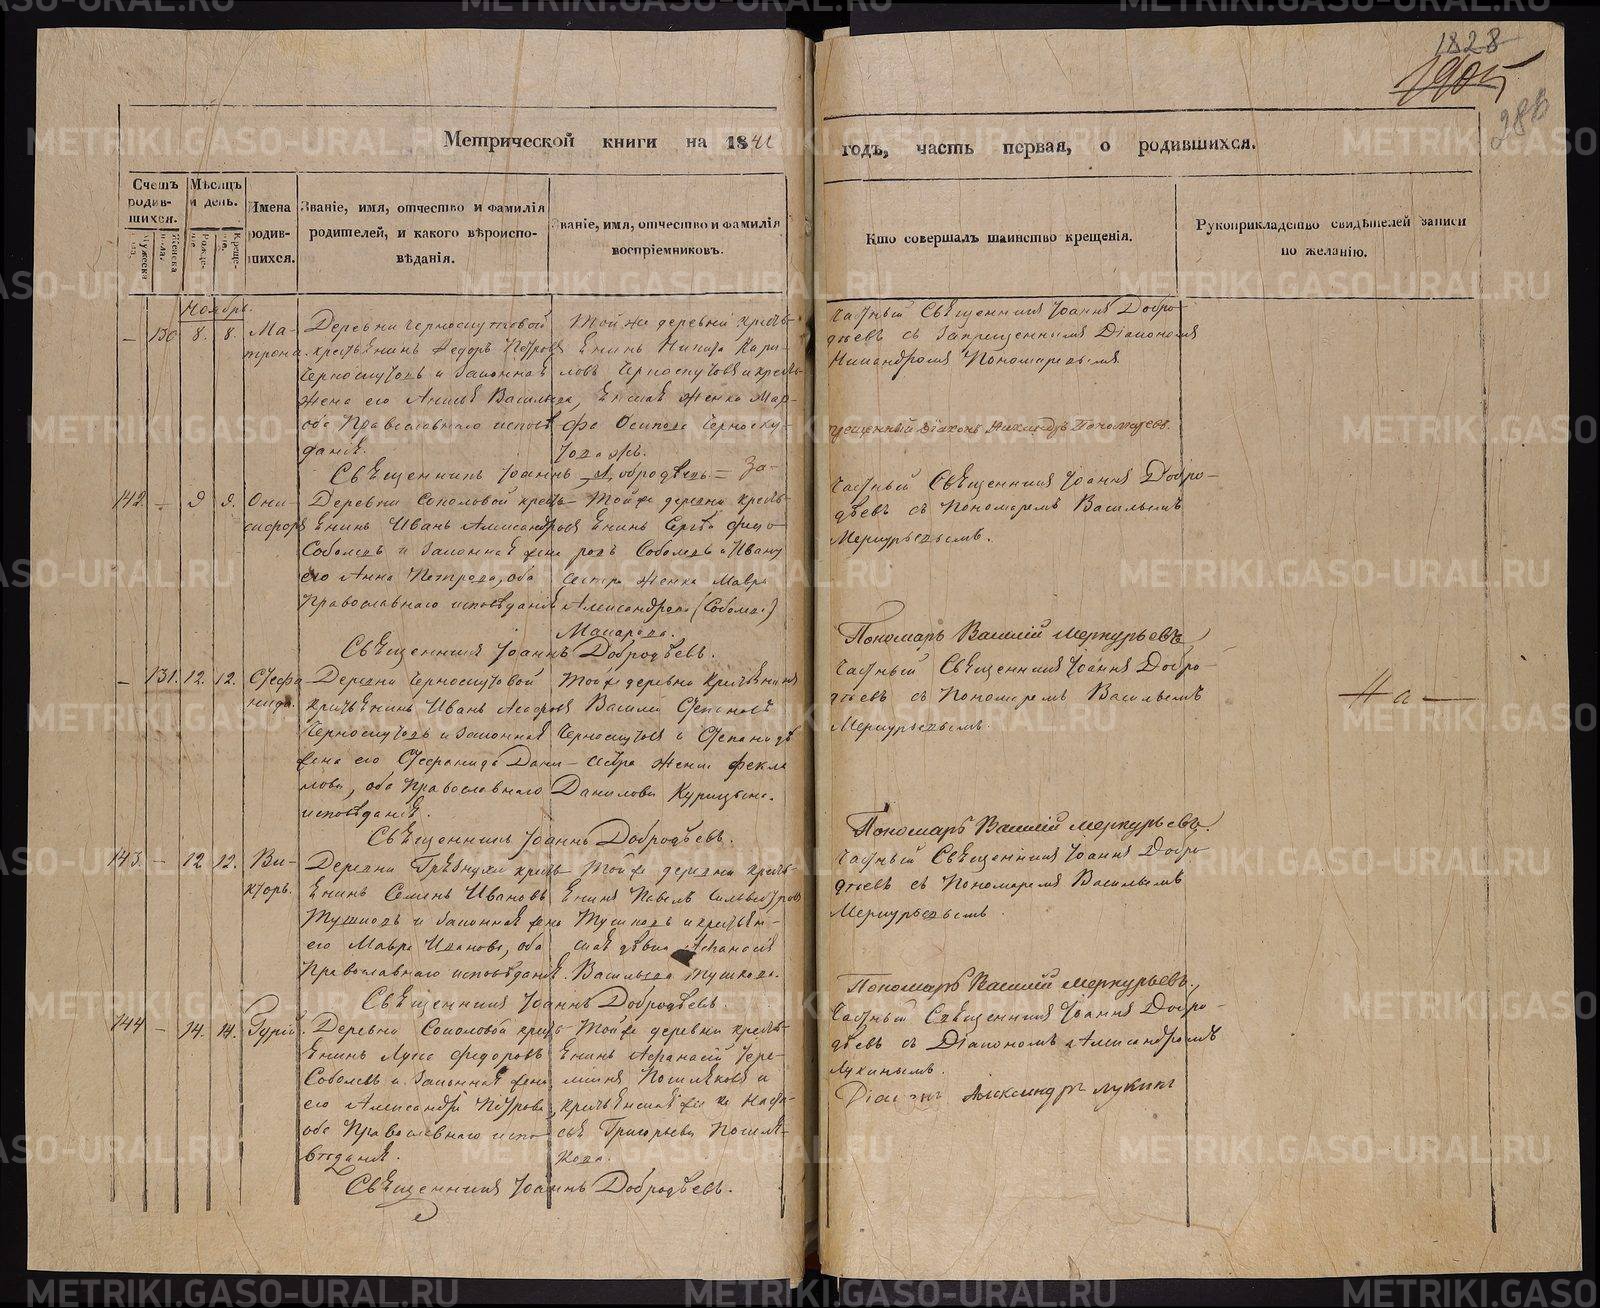 1828
1905
286
Метрической книги на 18
годъ, часть первая, о родившихся.
Счетъ родив-шихся.
Мужеска пола.
Женска пола.
Мѣсяцъ и день.
Рожде-нія.
Креще-нія.
Имена родив-шихся.
Званіе, имя, отчество и фамилія
родителей, и какого вѣроиспо-
вѣданія.
Званіе, имя, отчество и фамилія
воспріемниковъ.
Кто совершалъ таинство крещенія.
Рукоприкладство свидѣтелей записи
по желанію.
Ноябрь.
130 8. 8. Ма-
трона.
Деревни Черноскутовой
крестьянинъ Федоръ Петровъ
Черноскутовъ и законная
жена его Васильева,
оба Православнаго испов
данія.
Той же деревни кресть-
янинъ Никита Кари-
ловъ Черноскутовъ и кресть-
янская женка Мар-
фа Осипова Черноску-
това жъ.
Священникъ Іоаннъ Добродѣевъ = За-
Частный Священникъ Іоаннъ Добро-
дѣевъ съ Запрещеннымъ Діакономъ
Никандромъ Пономаревымъ
прещенный Діаконъ Никандръ Пономаревъ.
142. – 9 9. Они-
сифоръ
Деревни Соколовой кресть-
янинъ Иванъ Александровъ
Соболевъ и законная жена
его Анна Петрова, оба
Православнаго исповѣданія
Той же деревни кресть-
янинъ Сергѣй Федо-
ровъ Соболевъ и Ивану
сестра женка Мавра
Александрова (Соболева)
Макарова.
Священникъ Іоаннъ Добродѣевъ.
Частный Священникъ Іоаннъ Добро-
дѣевъ съ Пономаремъ Васильемъ
Меркурьевымъ.
Пономарь Василій Меркурьевъ
– 131. 12. 12. Стефа
нида.
Деревни Черноскутовой
крестьянинъ Иванъ
Черноскутовъ и законная
жена его Стефанида Дани-
лова, оба Православнаго
исповѣданія.
Той же деревни крестьянинъ
Василій Степановъ
Черноскутовъ и Стефанидѣ
сестра женка Фекла
Данилова Курицына.
Священникъ Іоаннъ Добродѣевъ.
Частный Священникъ Іоаннъ Добро-
дѣевъ съ Пономаремъ Васильемъ
Меркурьевымъ.
На
Пономарь Василій Меркурьевъ.
143. – 12 12. Ви-
кторъ.
Деревни Грязнухи кресть-
янинъ Семенъ Ивановъ
Тушковъ и законная жена
его Мавра Иванова, оба
Православнаго исповѣданія.
Той же деревни кресть-
янинъ Павелъ Сильвестровъ
Тушковъ и крестьян-
ская дѣвка Афанасія
Васильева Тушкова.
Священникъ Іоаннъ Добродѣевъ.
Частный Священникъ Іоаннъ Добро
дѣевъ съ Пономаремъ Васильемъ
Меркурьевымъ.
Пономарь Василій Меркурьевъ.
144 – 14. 14. Гурій.
Деревни Соколовой кресть-
янинъ Лука Федоровъ
Соболевъ и законная жена
его Александра Петрова,
оба Православнаго испо-
вѣданія.
Той же деревни кресть-
янинъ Афанасій Іере-
міинъ и
крестьянская женка
Григорьева
кова.
Священникъ Іоаннъ Добродѣевъ.
Частный Священникъ Іоаннъ Добро-
дѣевъ съ Діакономъ Александромъ
Лукинымъ.
Діаконъ Александръ Лукинъ
METRIKI.GASO-URAL.RU